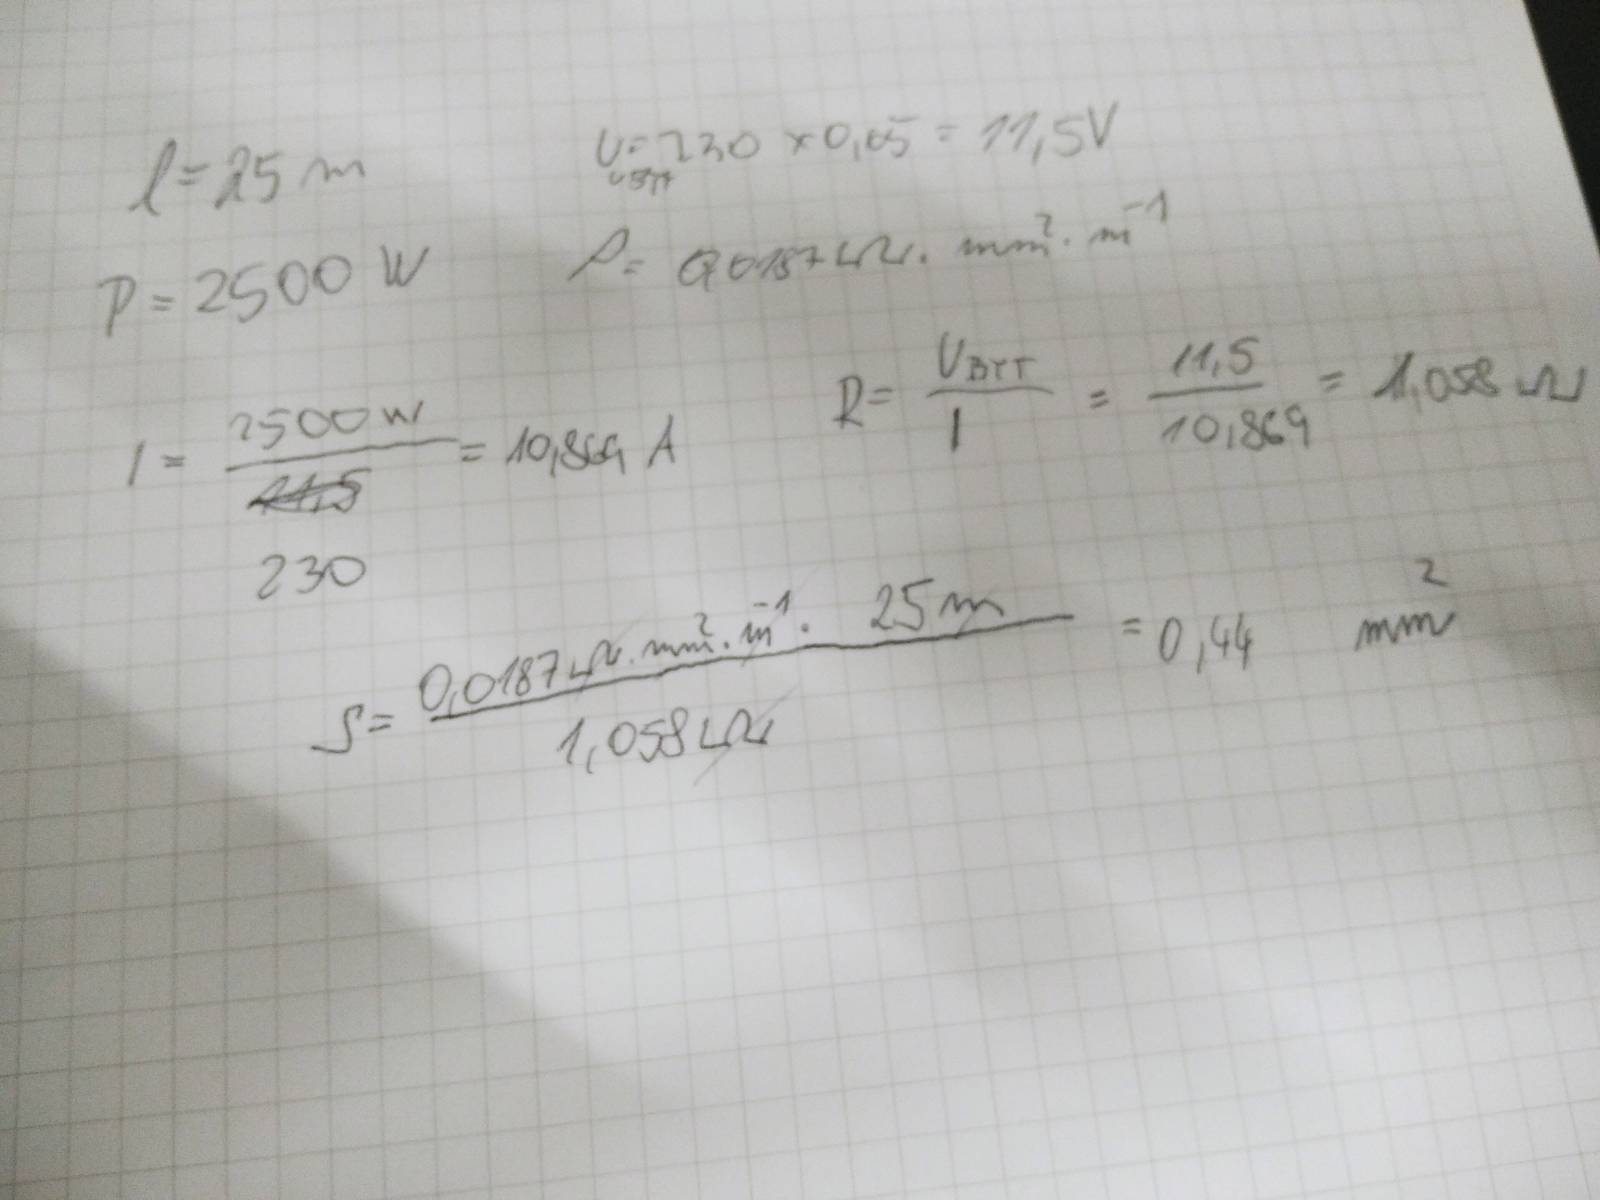 l = 25 m
U = 230 × 0,05 = 11,5V
P = 2500 W
ρ = 0,0187 Ω · mm² · m⁻¹
I = 2500 W / 230 = 10,869 A
R = Uʙʏᴛ / I = 11,5 / 10,869 = 1,058 Ω
S = 0,0187 Ω · mm² · m⁻¹ · 25 m / 1,058 Ω = 0,44 mm²